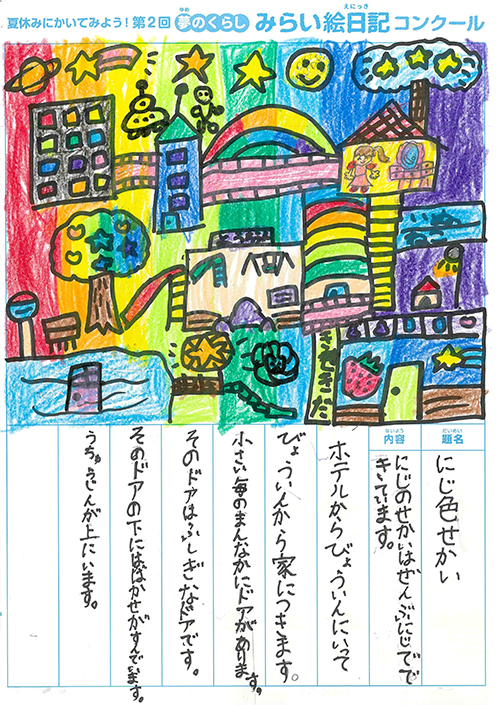 夏休みにかいてみよう!第2回 夢のくらし みらい絵日記コンクール
ゆめ
えにっき
だいめい
題名
にじ色せかい
ないよう
内容
にじのせかいはぜんぶにじでで
きています。
ホテルからびょういんにいって
びょういんから家につきます。
小さい海のまんなかにドアがあります。
そのドアはふしぎなドアです。
そのドアの下にはばかせがすんでいます。
うちゅうじんが上にいます。